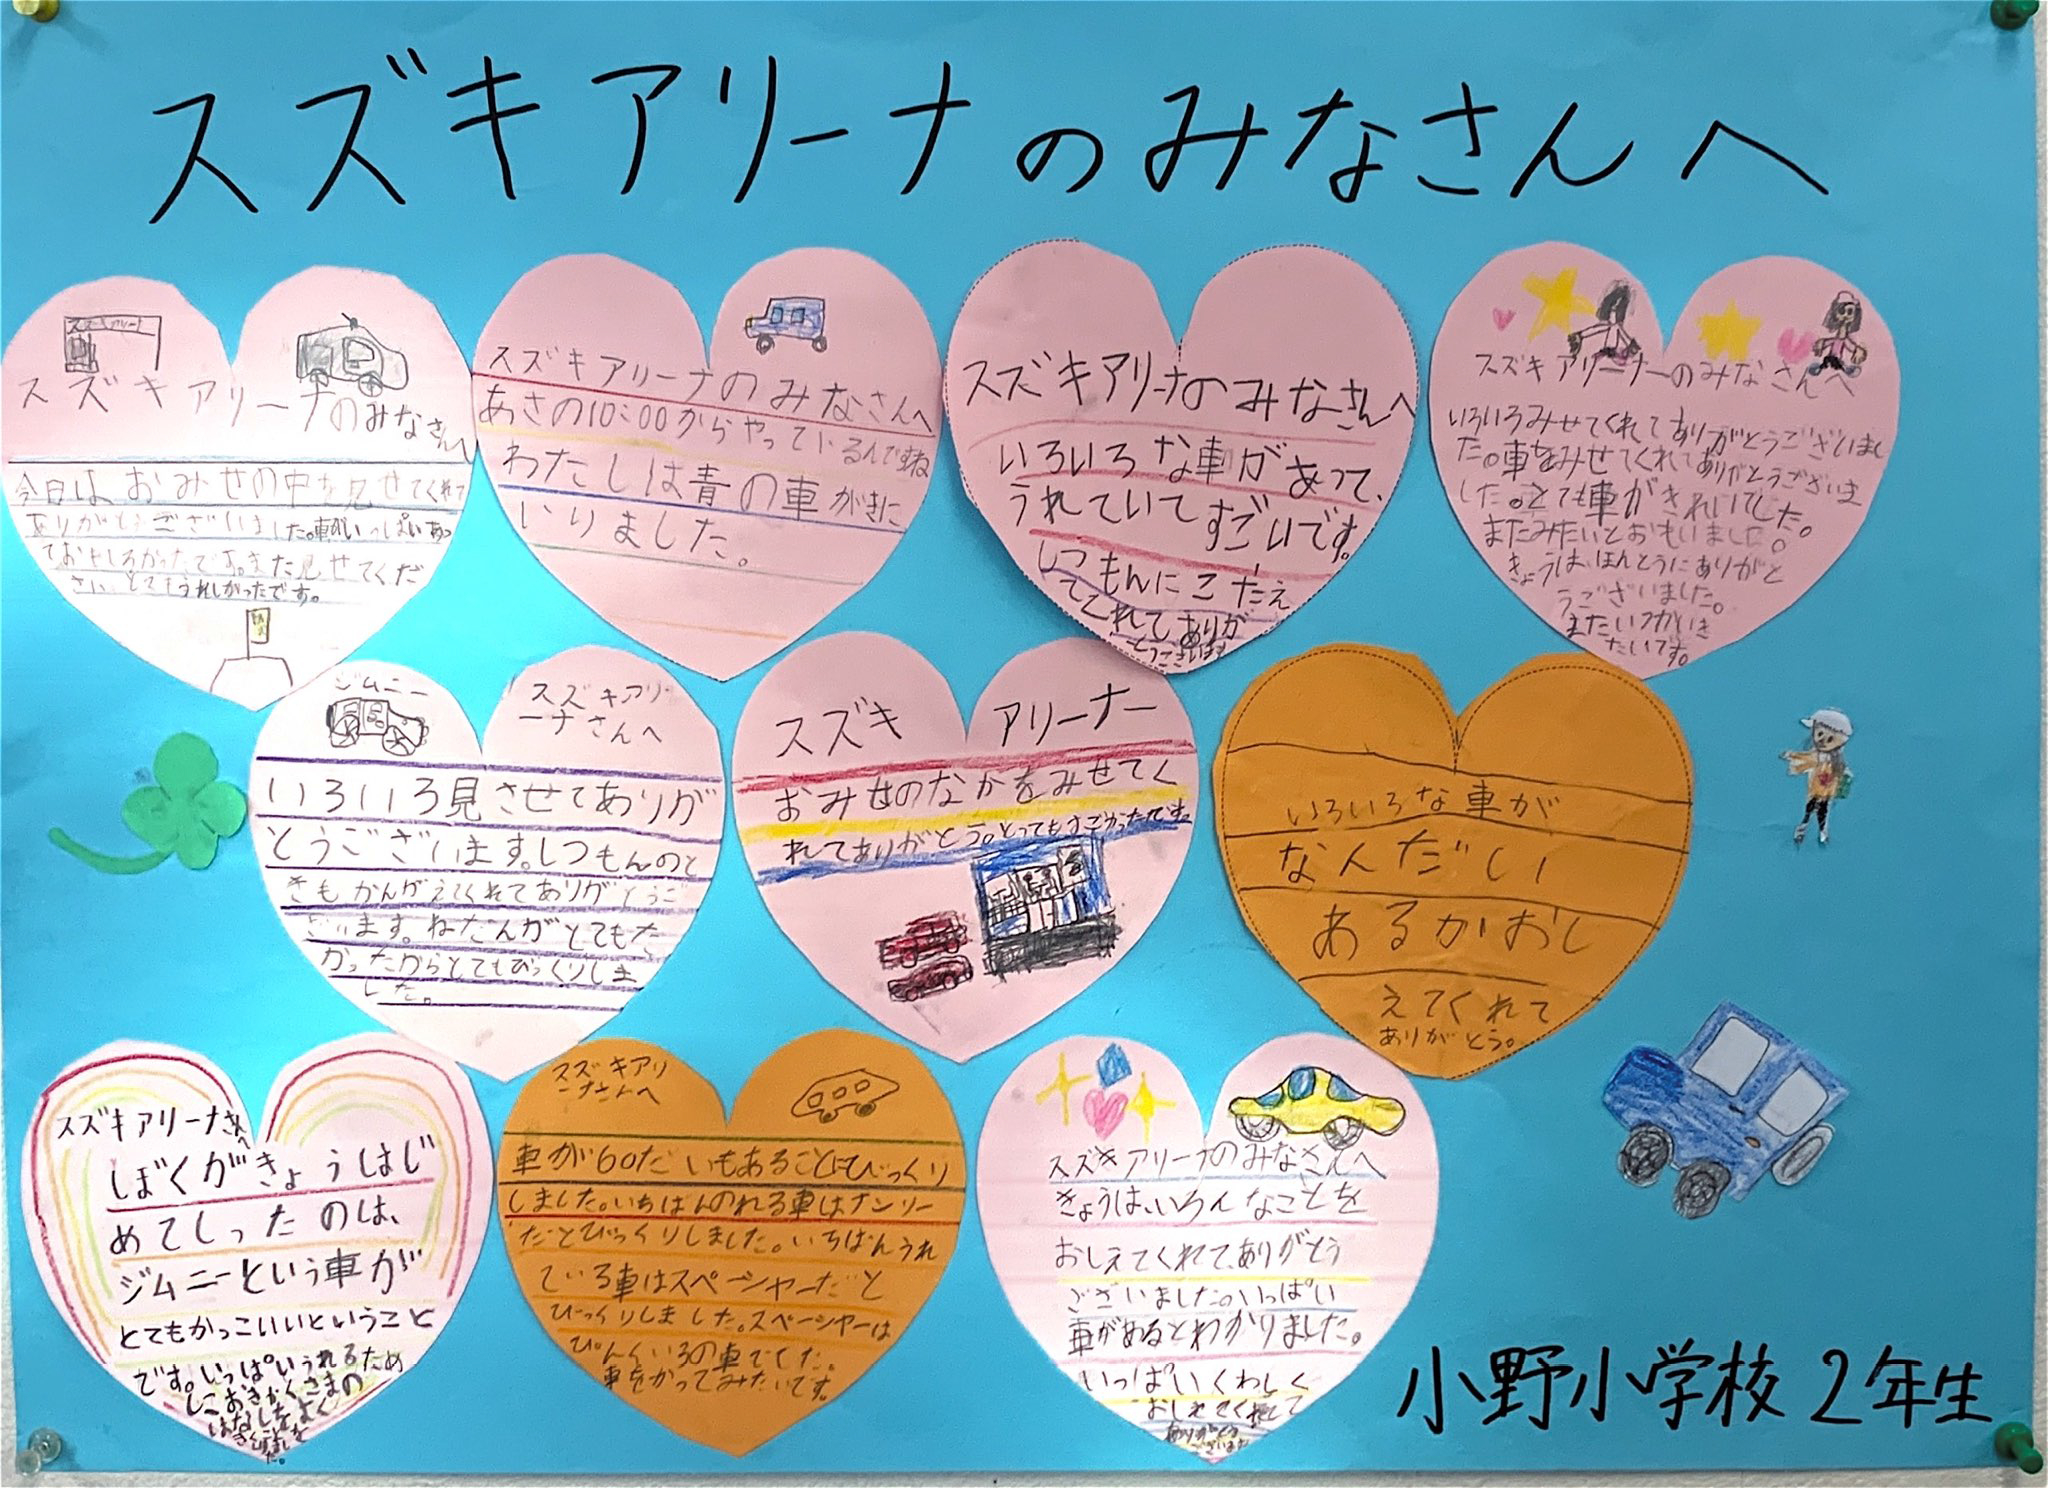 スズキアリーナのみなさんへ
スズキアリーナ
スズキアリーナのみなさんへ
今日はおみせの中を見せてくれて
ありがとうございました。車がいっぱいあっ
ておもしろかったです。また見せてくだ
さい。とてもうれしかったです。
スズキアリーナのみなさんへ
あさの10:00からやっているんですね
わたしは青の車がきに
いりました。
スズキアリーナのみなさんへ
いろいろな車があって、
うれていてすごいです。
しつもんにこたえ
てくれてありが
とうございます
スズキアリーナーのみなさんへ
いろいろみせてくれてありがとうございまし
た。車をみせてくれてありがとうございま
した。とても車がきれいでした。
またみたいとおもいました。
きょうは、ほんとうにありがと
うございました。
またいつかいき
たいです。
ジムニー
スズキアリ
ーナさんへ
いろいろ見させてありが
とうございます。しつもんのと
きもかんがえてくれてありがとうご
ざいます。ねだんがとてもた
かったからとてもびっくりしま
した。
スズキ アリーナー
おみせのなかをみせてく
れてありがとう。とってもすごかったです。
いろいろな車が
なんだい
あるかおし
えてくれて
ありがとう。
スズキアリーナさんへ
ぼくがきょうはじ
めてしったのは、
ジムニーという車が
とてもかっこいいということ
です。いっぱいうれるため
しこおきゃくさまの
はなしをよく
スズキアリ
ーナさんへ
車が60だいもあることにびっくり
しました。いちばんのれる車はナンリー
だとびっくりしました。いちばんうれ
ている車はスペーシャーだと
びっくりしました。スペーシャーは
ぴんくいろの車でした。
車をかってみたいです。
スズキアリーナのみなさんへ
きょうは、いろんなことを
おしえてくれて、ありがとう
ございました。いっぱい
車があるとわかりました。
いっぱいくわしく
ありがとう
ございます
小野小学校2年生